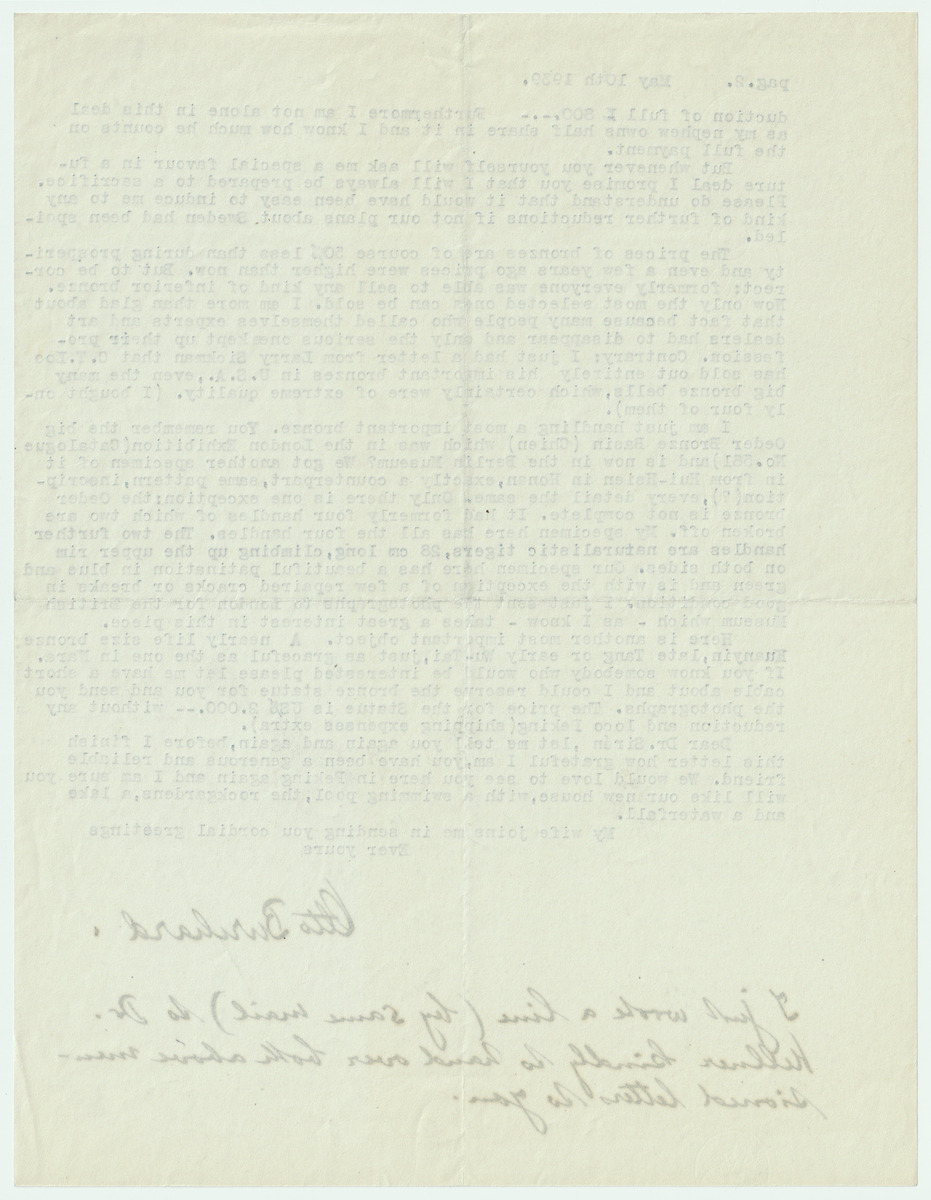 pag.2. May 10th 1939.
duction of full £ 800,-.- Furthermore I am not alone in this deal
as my nephew owns half share in it and I know how much he counts on
the full payment.
But whenever you yourself will ask me a special favour in a fu-
ture deal I promise you that I will always be prepared to a sacrifice.
Please do understand that it would have been easy to induce me to any
kind of further reductions if not our plans about Sweden had been spoi-
led.
The prices of bronzes are of course 50% less then during prosperi-
ty and even a few years ago prices were higher than now. But to be cor-
rect: formerly everyone was able to sell any kind of inferior bronze.
Now only the most selected ones can be sold. I am more then glad about
that fact because many people who called themselves experts and art
dealers had to disappear and only the serious one kept up their pro-
fession. Contrary: I just had a letter from Larry Sickman that C.T.Loo
has sold out entirely his important bronzes in U.S.A., even the many
big bronze bells,which certainly were of extreme quality. (I bought on-
ly four of them).
I am just handling a most important bronze. You remember the big
Oeder Bronze Basin (Chien) which was in the London Exhibition(Catalogue
No.581)and is now in the Berlin Museum? We got another specimen of it
in from Hui-Hsien in Honan,exactly a counterpart,same pattern,inscrip-
tion(?),every detail the same. Only there is one exception:the Oeder
bronze is not complete. It had formerly four handles of which two are
broken off. My specimen here has all the four handles. The two further
handles are naturalistic tigers,28 cm long,climbing up the upper rim
on both sides. Our specimen here has a beautiful patination in blue and
green and is with the exception of a few repaired cracks or breaks in
good condition. I just sent the photographs to London for the British
Museum which - as I know - takes a great interest in this piece.
Here is another most important object. A nearly life size bronce
Kuanyin,late Tang or early Wu-Tai,just as graceful as the one in Nara.
If you know somebody who would be interested please let me have a short
cable about and I could reserve the bronze statue for you and send you
the photographs. The price for the Statue is US$ 2.000.-- without any
reduction and loco Peking(shipping expenses extra).
Dear Dr.Sirén ,let me tell you again and again,before I finish
this letter how grateful I am,you have been a generous and reliable
friend. We would love to see you here in Peking again and I am sure you
will like our new house,with a swimming pool,the rockgardens,a lake
and a waterfall.
My wife joins me in sending you cordial greetings
Ever yours
Otto Burchard.
I just wrote a line (by same mail) to Dr.
Kellner kindly to hand over both above men-
sioned letters to you.